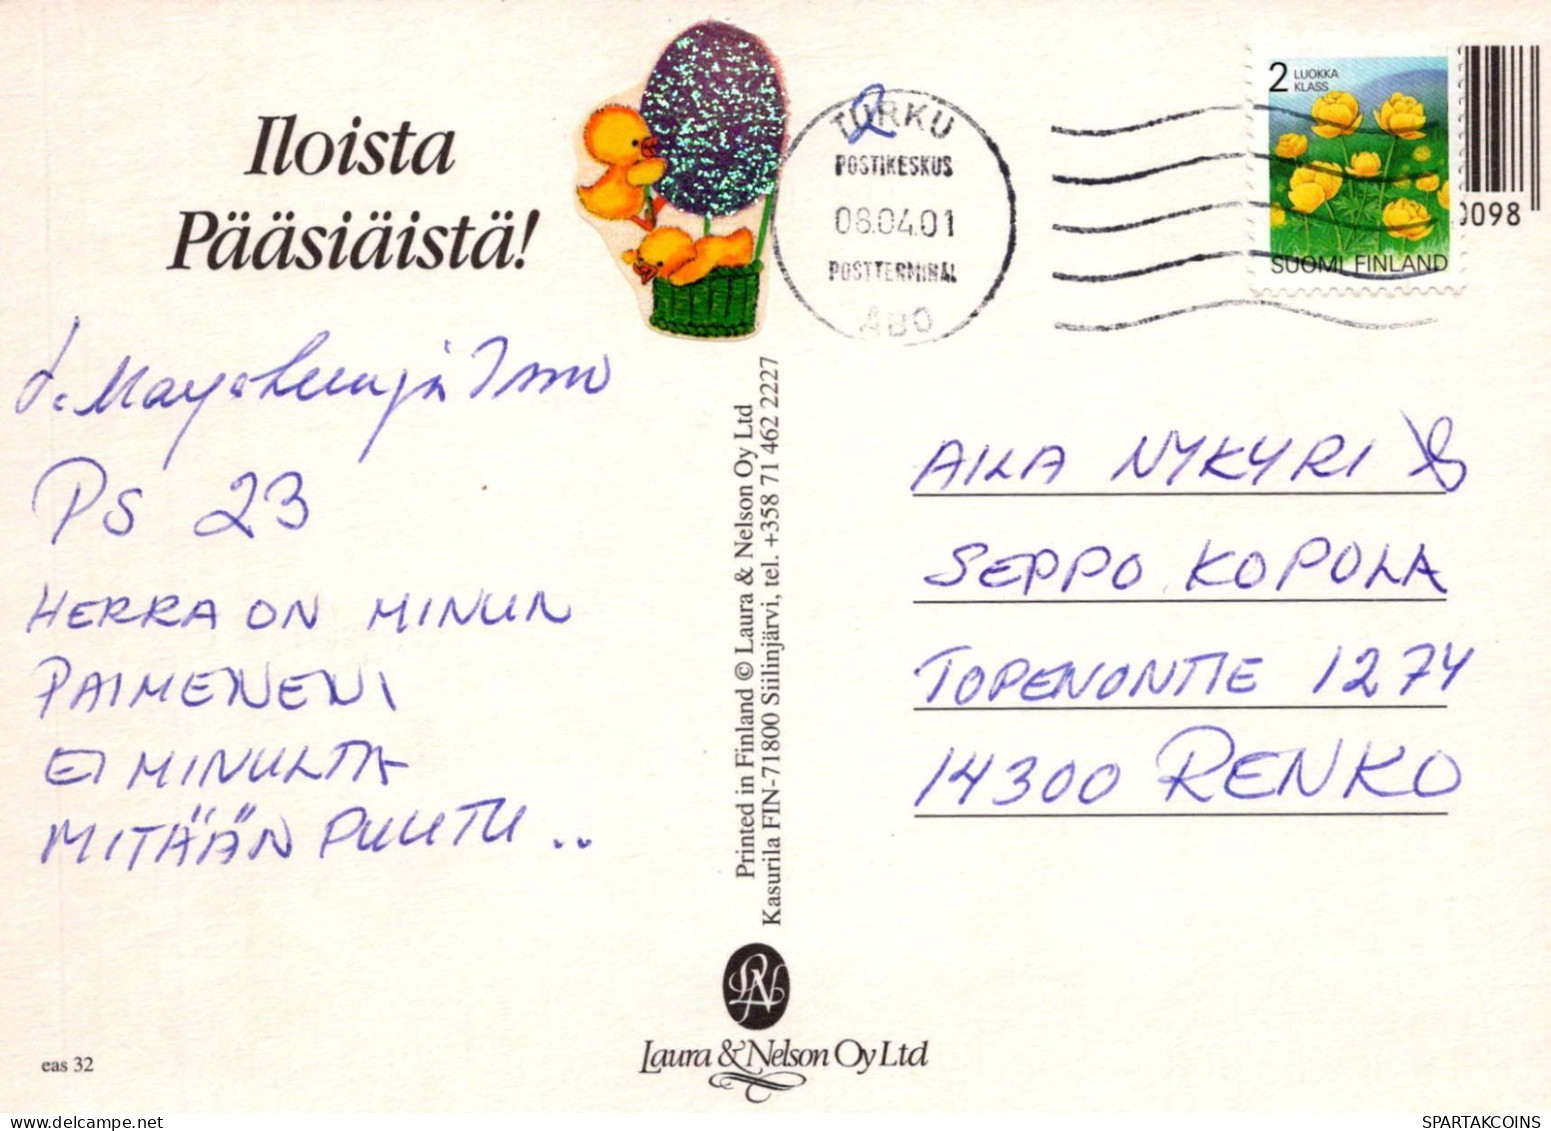 Iloista
Pääsiäistä!
T. Marja-Leena ja Ismo
PS 23
HERRA ON MINUN
PAIMENENI
EI MINULTA
MITÄÄN PUUTU ..
eas 32
Printed in Finland © Laura & Nelson Oy Ltd
Kasurila FIN-71800 Siilinjärvi, tel. +358 71 462 2227
LN
Laura & Nelson Oy Ltd
TURKU
POSTIKESKUS
08.04.01
POSTTERMINAL
ÅBO
2 LUOKKA
KLASS
SUOMI FINLAND
0098
AILA NYKYRI &
SEPPO KOPOLA
TOPENONTIE 1274
14300 RENKO
SPARTAKCOINS